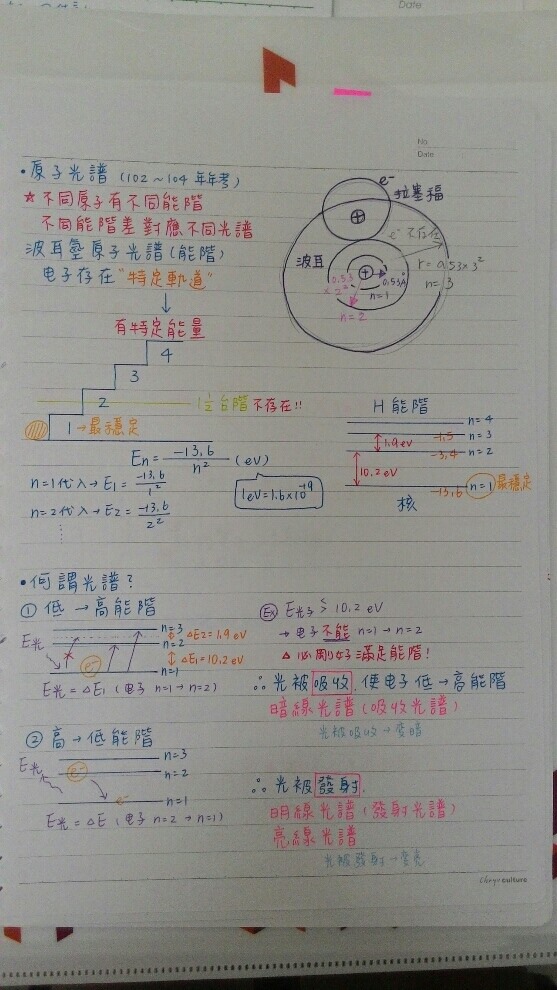 Date
No.
Date
•原子光譜 (102~104 年年考)
☆不同原子有不同能階
不同能階差對應不同光譜
波耳氫原子光譜(能階)
电子存在"特定軌道"
↓
有特定能量
4
3
2
1 → 最穩定
1½台階 不存在!!
e⁻
拉塞福
⊕
波耳
e⁻ 不存在
r = 0.53 × 3²
n = 3
⊕
0.53Å
n=1
0.53
× 2²
n = 2
En = -13.6 / n² (eV)
n=1代入 → E1 = -13.6 / 1²
n=2代入 → E2 = -13.6 / 2²
1eV=1.6×10⁻¹⁹
H 能階
n = 4
-1.5 n = 3
1.9 eV
-3.4 n = 2
10.2 eV
-13.6 n=1 最穩定
核
•何謂光譜?
① 低 → 高能階
E光
n=3
n=2
n=1
e⁻
ΔE2 = 1.9 eV
ΔE1 = 10.2 eV
E光 = ΔE1 (电子 n=1 → n=2)
Ex E光子 > 10.2 eV
<
→ 电子不能 n=1 → n=2
△ 必周り好滿足能階!
∴ 光被吸收, 使电子低→高能階
暗線光譜(吸收光譜)
光被吸收 → 變暗
② 高 → 低能階
E光
n=3
e⁻ n=2
e⁻ n=1
E光 = ΔE (电子 n=2 → n=1)
∴ 光被發射,
明線光譜(發射光譜)
亮線光譜
光被發射 → 變亮
culture